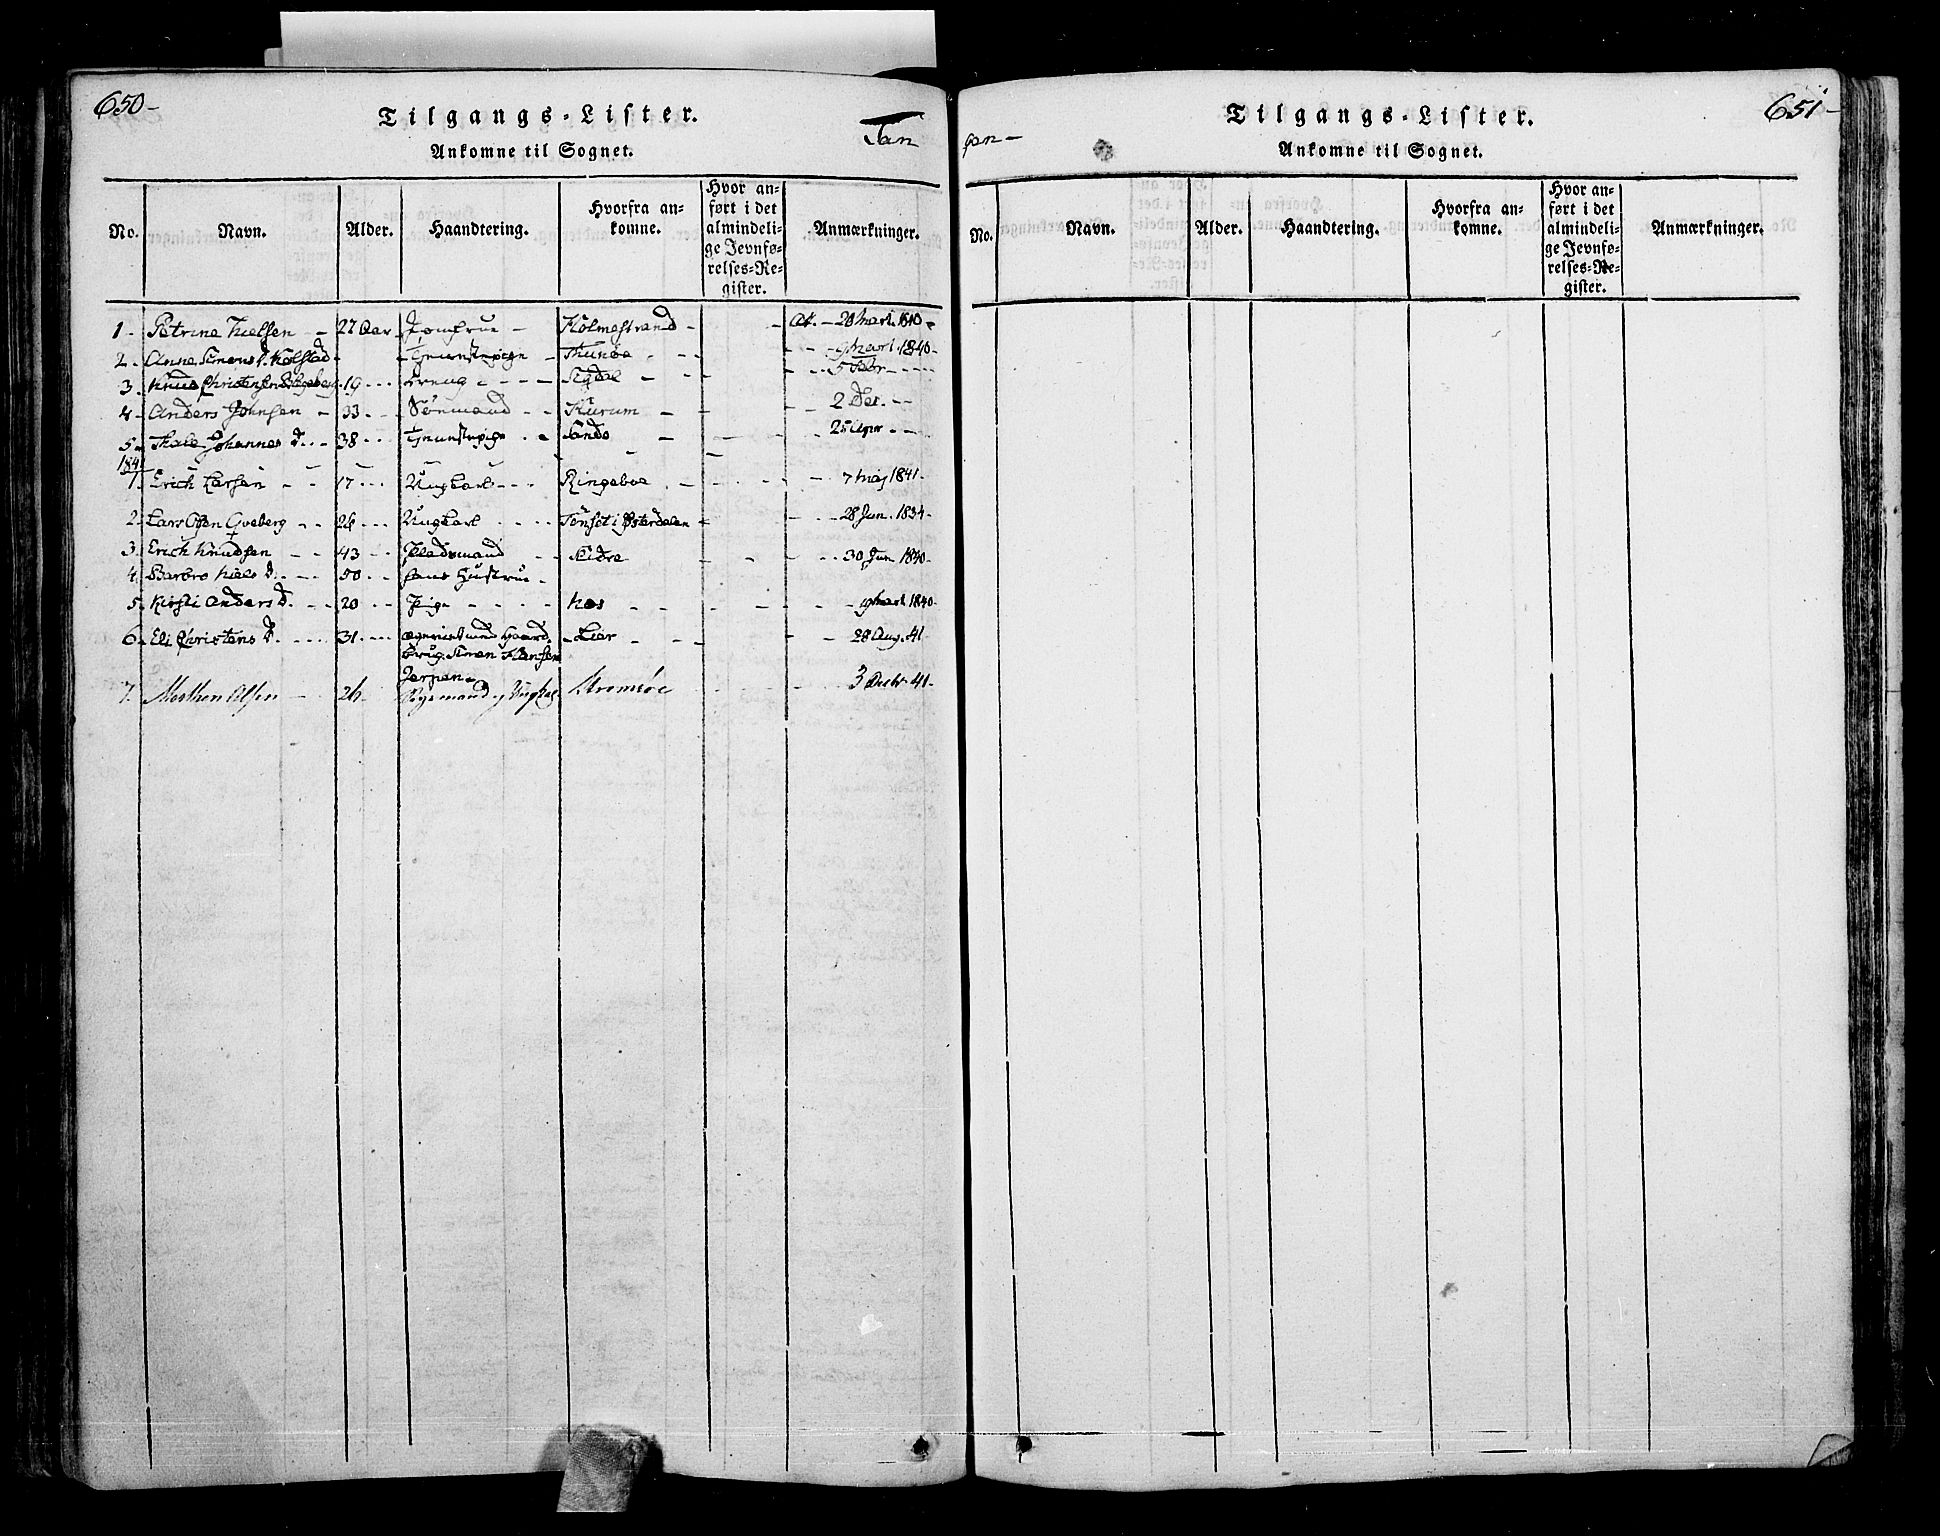 650-
Tilgangs-Lister.
Ankomne til Sognet.
Tan
No. Navn. Alder. Haandtering. Hvorfra ankomne. Hvor anført i det almindelige Jevnførelses-Register. Anmærkninger.
1- Petrine Nielsen - 27 Aar Jomfrue - Holmestrand - At. - 28 Mart. 1840-
2- Anna Simens D. Kolstad - Tjenestepige - - 9 Mart. 1840-
3 Knud Christensen 19 - Dreng - Sigdal - 5 Febr -
4- Anders Johnsen - 33 - Sømand - - 2 Dec. -
5- Johannes D. - 38 - Tjenestepige - Sande - 25 Apr -
1841
1. Erich Larsen - 17 - Ungkarl - Ringeboe - 7 Maj 1841-
2. Lars Olsen Gveberg - 24 - Ungkarl - Tønset i Østerdalen - 28 Jun. 1834-
3. Erich Knudsen - 43 - Pladsmand - Slidre - 30 Jun 1840-
4. Barbro Niels D. - 50 - hans Hustrue -
5. Kirsti Anders D. - 20 - Pige - Næs - 1840-
6. Eli Christens D. - 31 - Gaard- - Lier - 28 Aug. 41-
brug. Simen Hansen
Jerpen
7. Morthen Olsen - 26 - og Ungkarl Strømsøe - 3 Decbr 41-
651-
Tilgangs-Lister.
Ankomne til Sognet.
gen-
No. Navn. Alder. Haandtering. Hvorfra ankomne. Hvor anført i det almindelige Jevnførelses-Register. Anmærkninger.